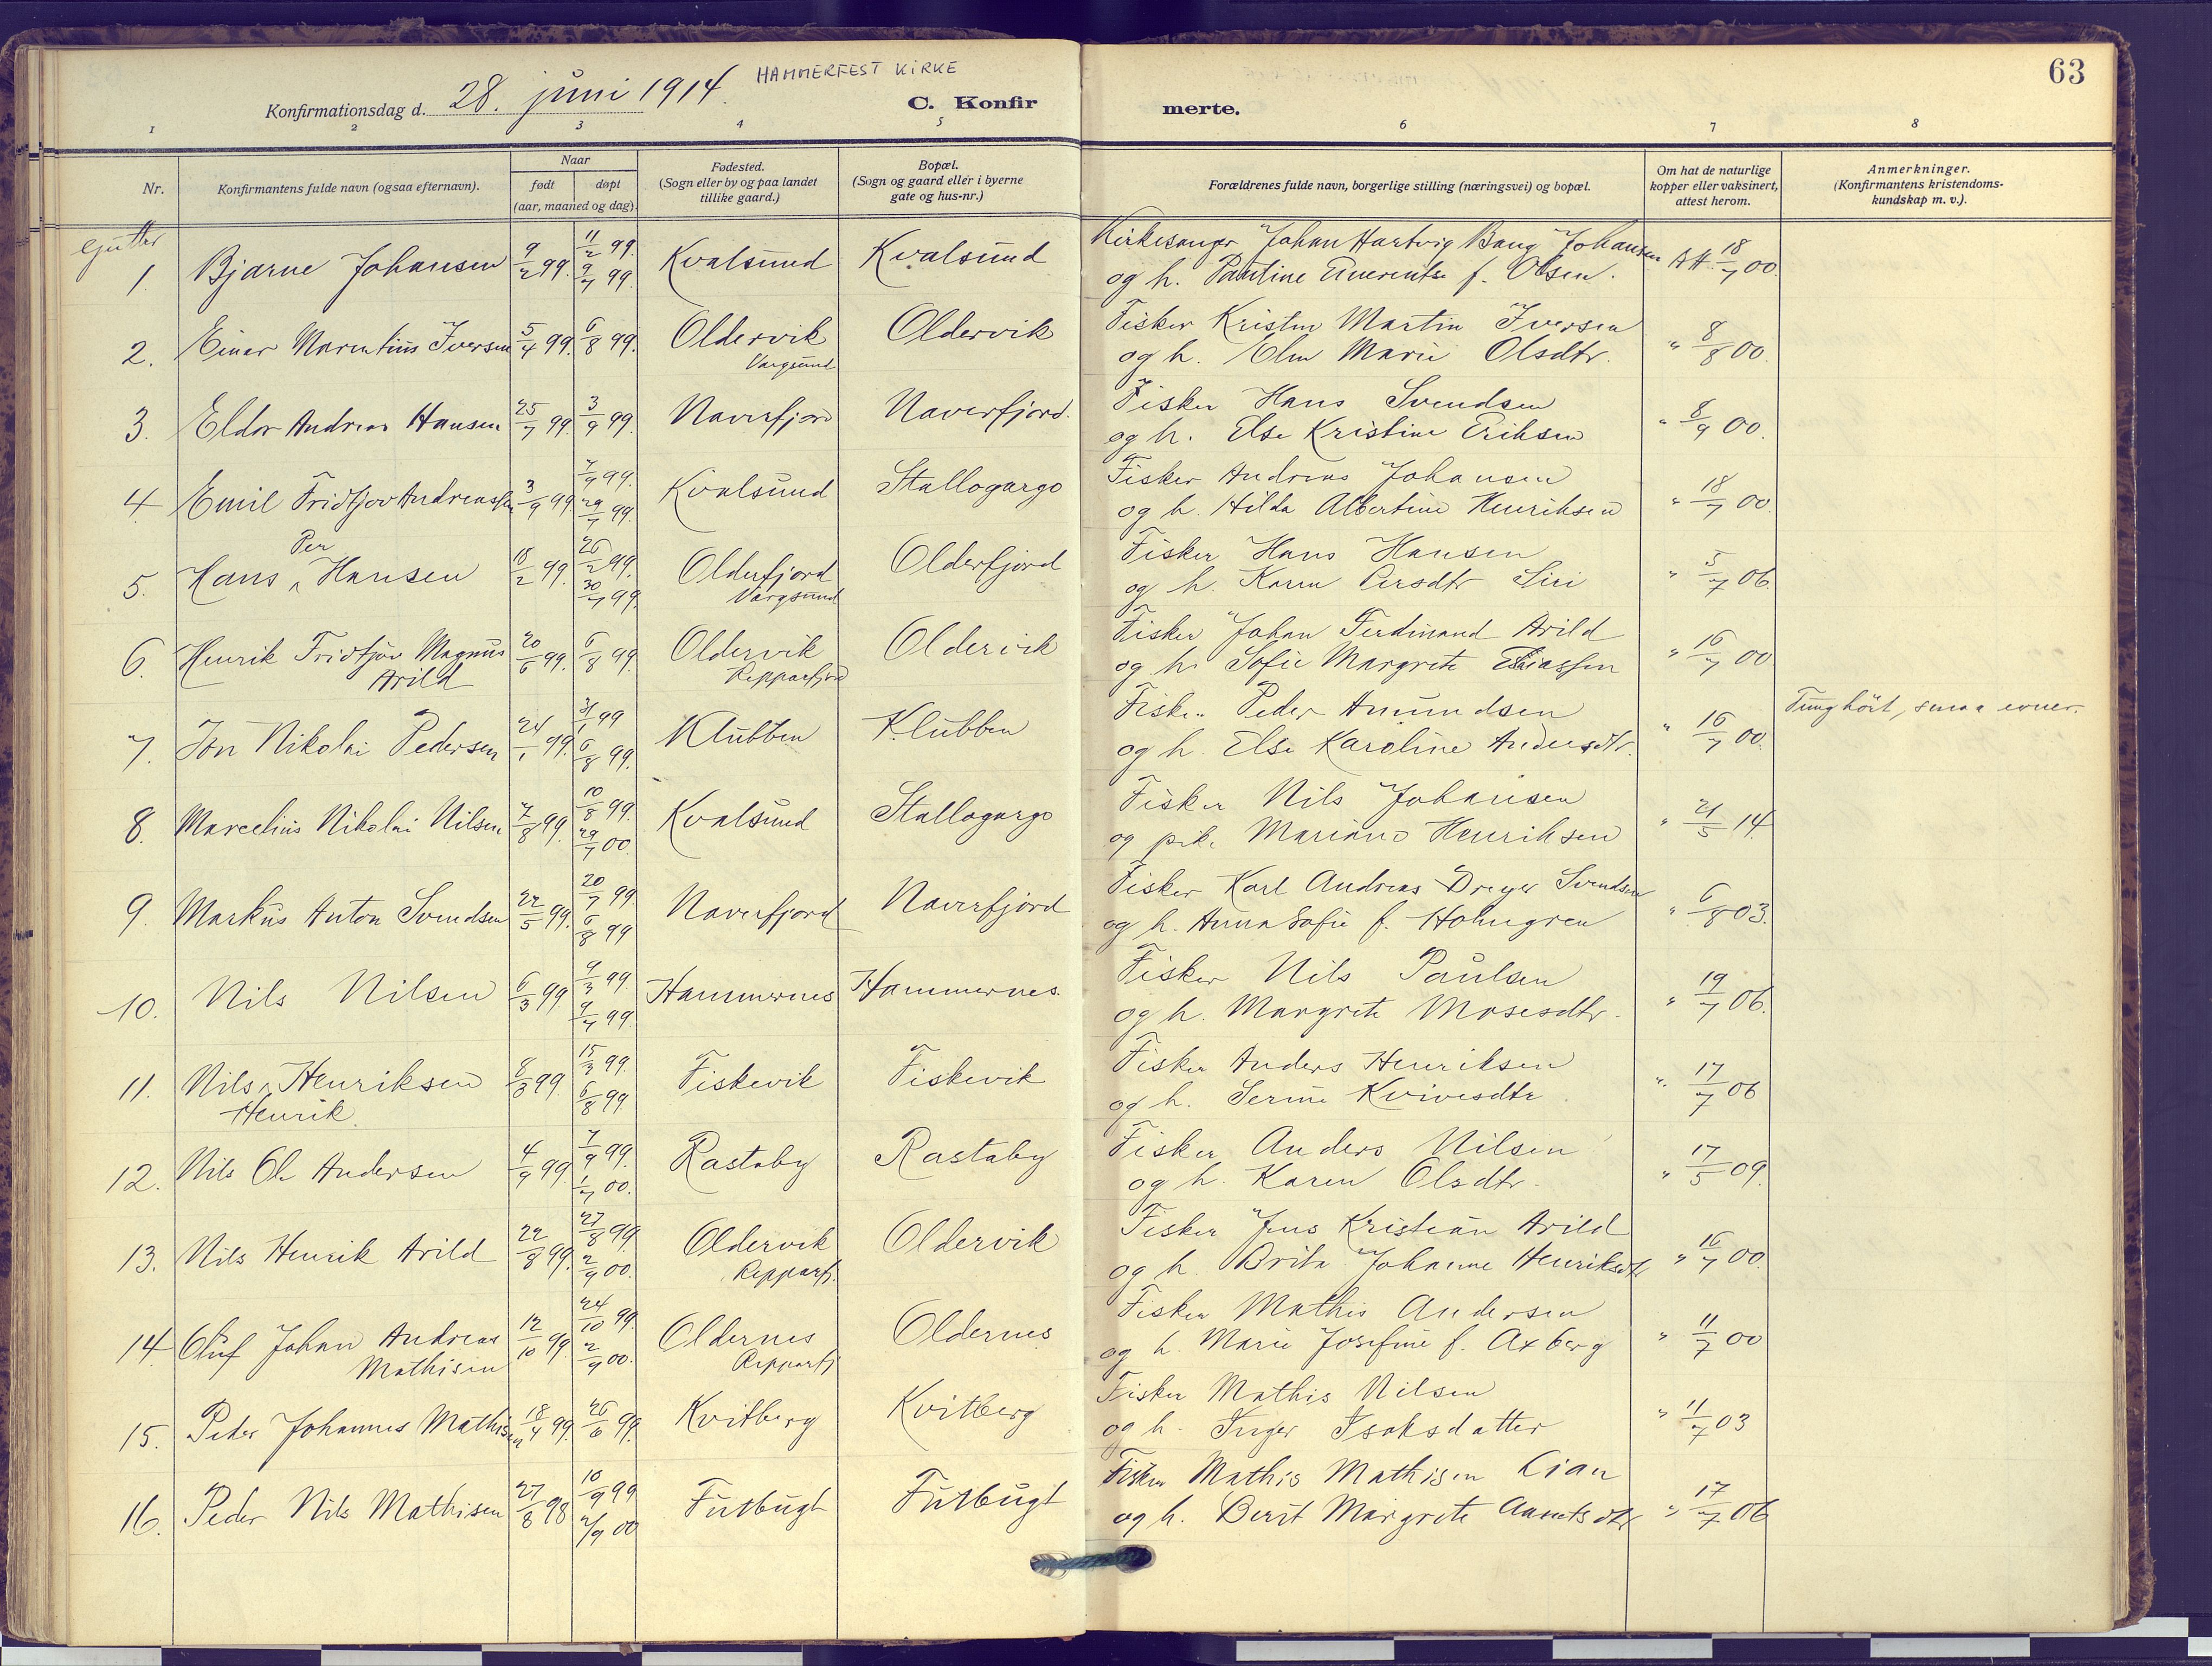 63
HAMMERFEST KIRKE
Konfirmationsdag d. 28. juni 1914.
C. Konfirmerte.
1 2 3 4 5 6 7 8
Nr.
Konfirmantens fulde navn (ogsaa efternavn).
Naar
født
døpt
(aar, maaned og dag).
Fødested.
(Sogn eller by og paa landet
tillike gaard.)
Bopæl.
(Sogn og gaard eller i byerne
gate og hus-nr.)
Forældrenes fulde navn, borgerlige stilling (næringsvei) og bopæl.
Om hat de naturlige
kopper eller vaksinert,
attest herom.
Anmerkninger.
(Konfirmantens kristendoms-
kundskap m. v.).
Gutter
1. Bjarne Johansen 9/2 99. 11/2 99. 9/7 99. Kvalsund Kvalsund Kirkesanger Johan Hartvig Bang Johansen 18/7 00.
og h. Pauline f. Olsen.
2. Einar Marentius Iversen 5/4 99. 6/8 99. Oldervik Vargsund Oldervik Fisker Kristen Martin Iversen " 8/8 00.
og h. Elen Marie Olsdtr.
3. Eldor Andreas Hansen 25/7 99. 3/9 99. Naverfjord Naverfjord. Fisker Hans Svendsen " 8/9 00.
og h. Else Kristine Eriksen
4. Emil Fridtjov Andreassen 3/9 99. 7/9 99. 29/7 99. Kvalsund Stallogargo Fisker Andreas Johansen " 18/7 00.
og h. Hilda Albertine Henriksen
5. Hans Per Hansen 18/2 99. 26/2 99. 30/7 99. Olderfjord Vargsund Olderfjord Fisker Hans Hansen " 5/7 06.
og h. Karen Persdtr Siri
6. Henrik Fridtjov Magnus Arild 20/6 99. 6/8 99. Oldervik Repparfjord Oldervik Fisker Johan Ferdinand Arild " 16/7 00
og h. Sofie Margrete Eliassen
7. Jon Nikolai Pedersen 24/1 99. 31/1 99 6/8 99. Klubben Klubben Fisker Peder Amundsen " 16/7 00. Tunghört, smaa evner.
og h. Else Karoline Andersdtr.
8. Marcelius Nikolai Nilsen 7/8 99. 10/8 99. 29/7 00. Kvalsund Stallogargo Fisker Nils Johansen " 21/5 14.
og pik. Mariane Henriksen
9. Markus Anton Svendsen 22/5 99. 20/7 99. 6/8 99 Naverfjord Naverfjord Fisker Karl Andreas Dreyer Svendsen " 6/8 03.
og h. Anna Sofie f. Holmgren
10. Nils Nilsen 6/3 99 9/3 99. 9/7 99. Hammernes Hammernes. Fisker Nils Paulsen " 19/7 06.
og h. Margrete Mosesdtr.
11. Nils Henrik Henriksen 8/3 99. 15/3 99. 6/8 99. Fiskevik Fiskevik Fisker Anders Henriksen " 17/7 06
og h. Serine Kvivesdtr.
12. Nils Ole Andersen 4/9 99 7/9 99. 1/7 00. Rastaby Rastaby Fisker Anders Nilsen " 17/5 09.
og h. Karen Olsdtr.
13. Nils Henrik Arild 22/8 99. 27/8 99. 2/9 00. Oldervik Repparfj. Oldervik Fisker Jens Kristian Arild " 16/7 00.
og h. Brita Johanne Henriksdtr
14. Oluf Johan Andreas Mathisen 12/10 99. 24/10 99. 2/9 00. Oldernes Repparfj Oldernes Fisker Mathis Andersen " 11/7 00
og h. Marie Josefine f. Axberg
15. Peder Johannes Mathisen 18/4 99. 26/6 99. Kvitberg Kvitberg Fisker Mathis Nilsen " 11/7 03
og h. Inger Isaksdatter
16. Peder Nils Mathisen 27/8 98 10/9 99 2/9 00 Futbugt Futbugt Fisker Mathis Mathisen " 17/7 06
og h. Berit Margrete